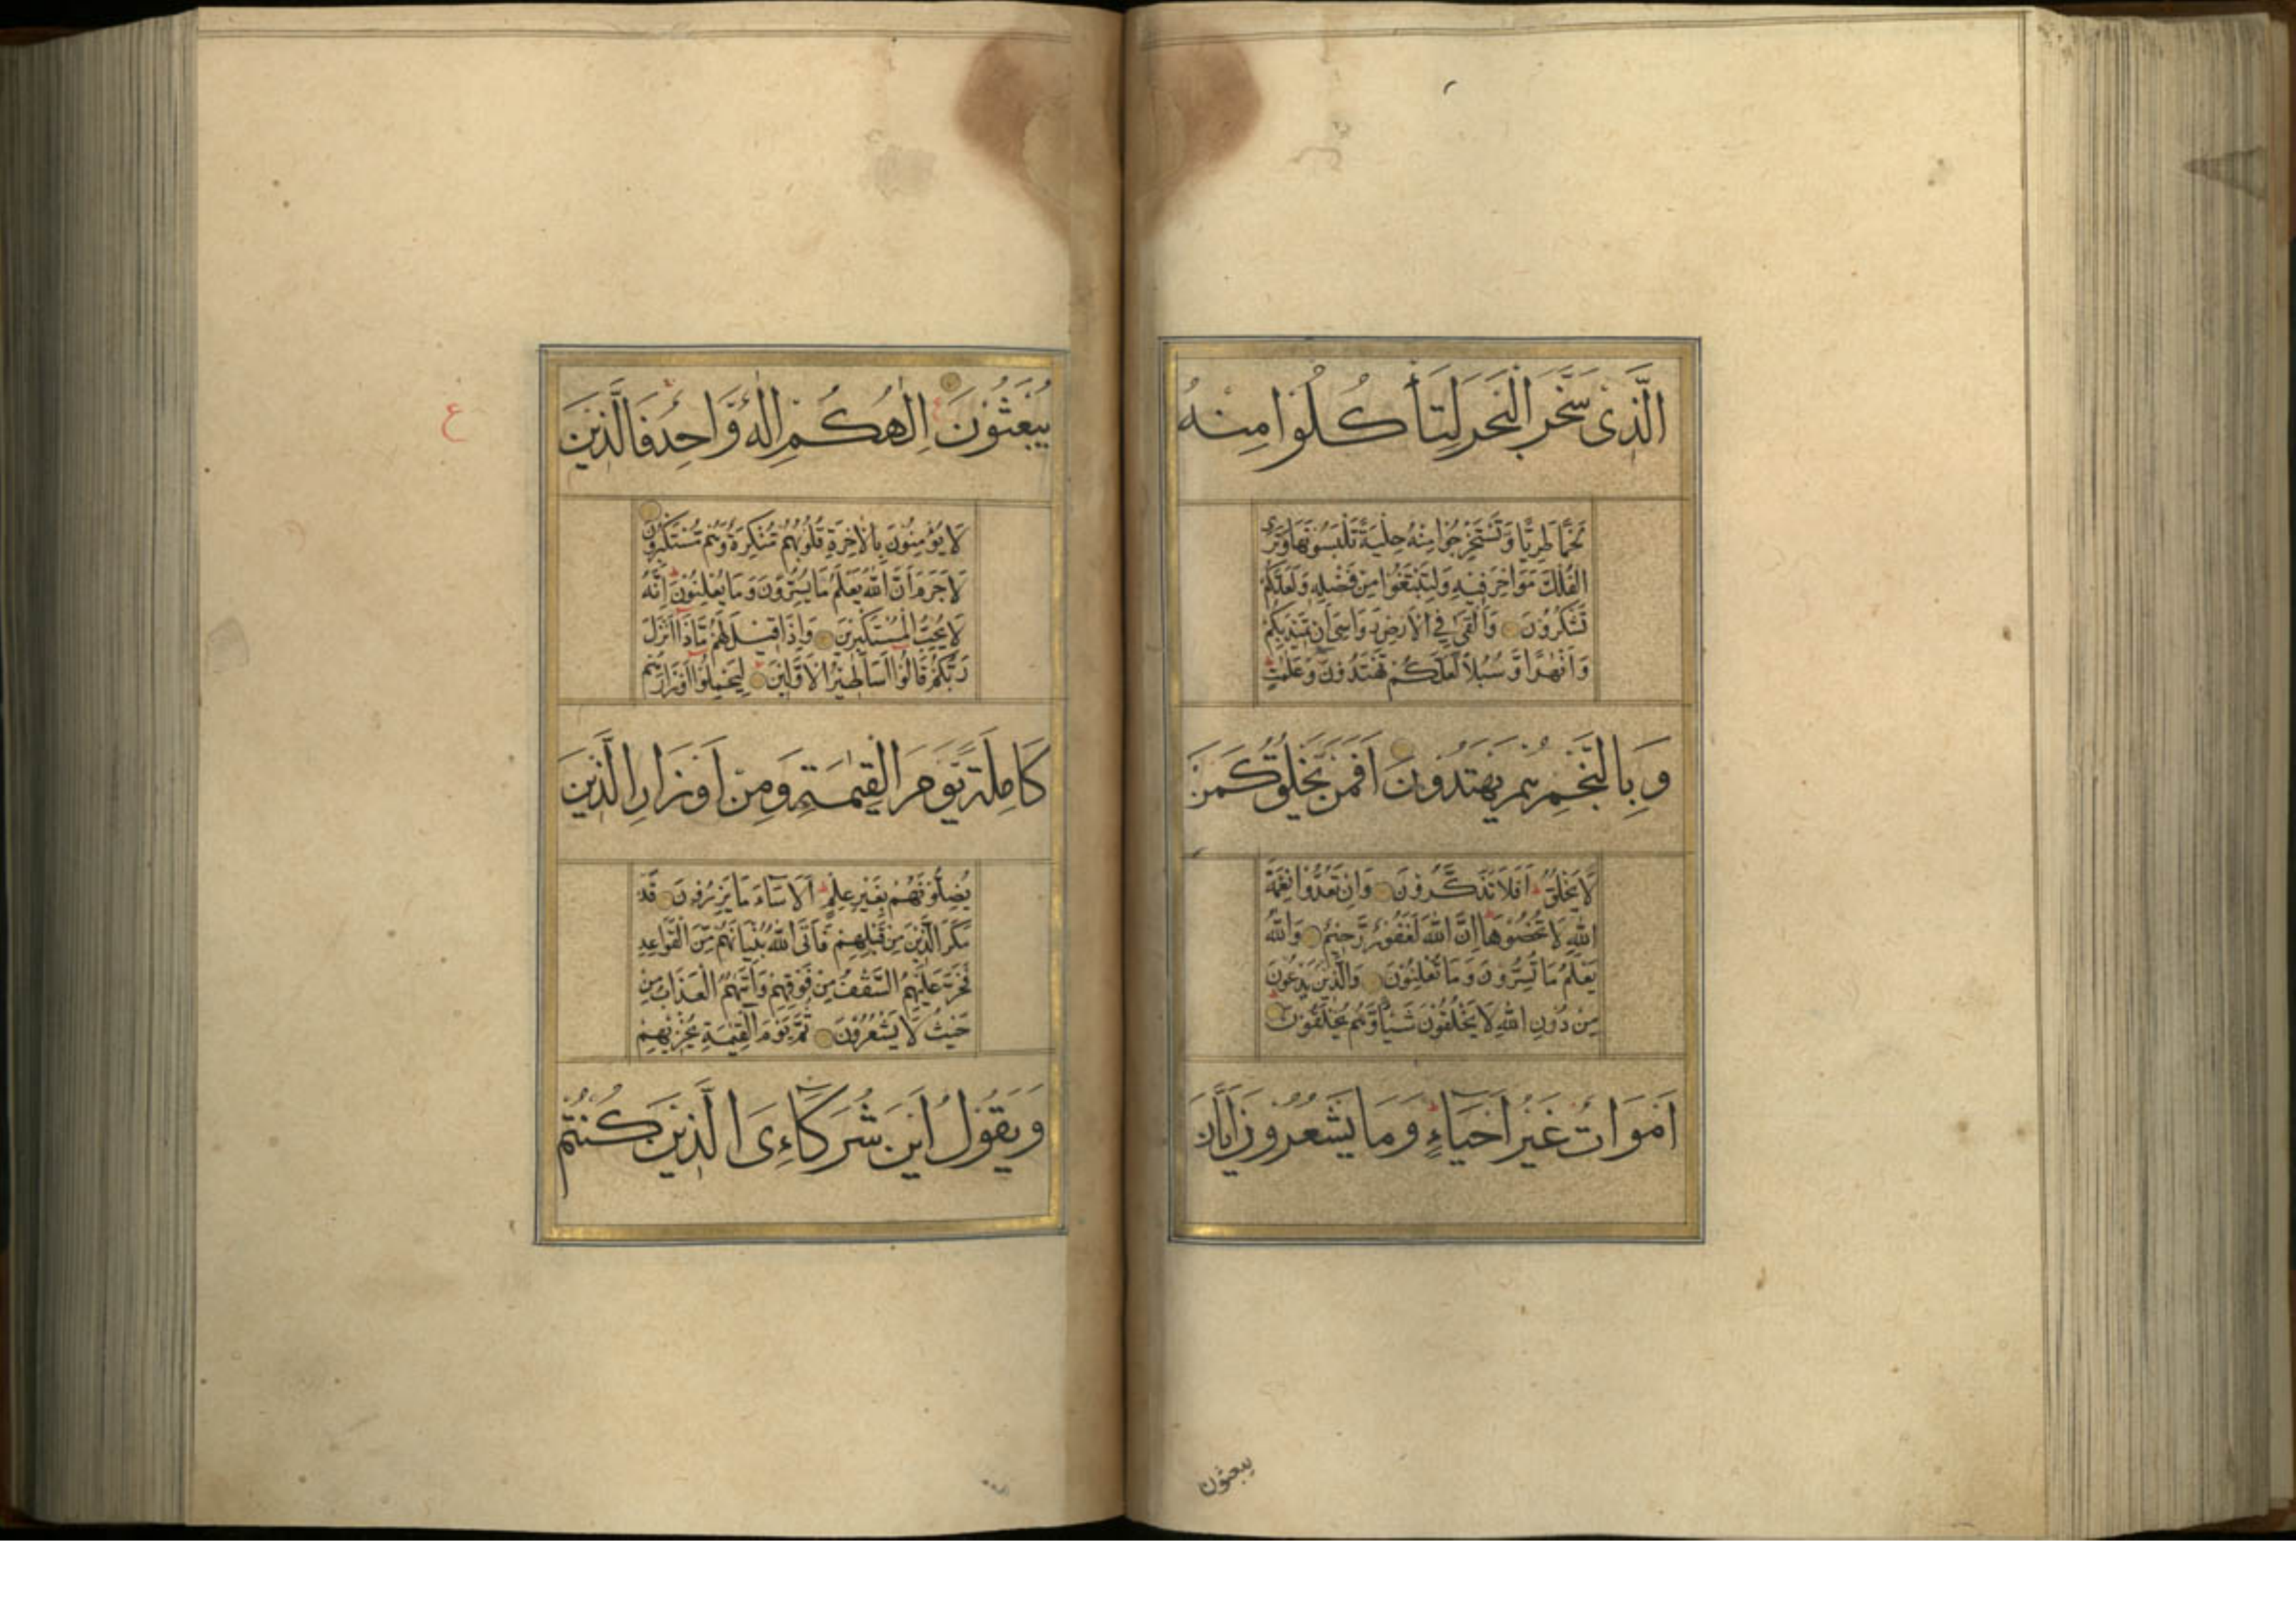 الَّذِىْ سَخَّرَ الْبَحْرَ لِتَأْكُلُوْا مِنْهُ
لَحْمًا طَرِيًّا وَّتَسْتَخْرِجُوْا مِنْهُ حِلْيَةً تَلْبَسُوْنَهَا وَتَرَى
الْفُلْكَ مَوَاخِرَ فِيْهِ وَلِتَبْتَغُوْا مِنْ فَضْلِهٖ وَلَعَلَّكُمْ
تَشْكُرُوْنَ وَاَلْقٰى فِى الْاَرْضِ رَوَاسِىَ اَنْ تَمِيْدَ بِكُمْ
وَاَنْهٰرًا وَّسُبُلًا لَعَلَّكُمْ تَهْتَدُوْنَ وَعَلٰمٰتٍ
وَبِالنَّجْمِ هُمْ يَهْتَدُوْنَ اَفَمَنْ يَخْلُقُ كَمَنْ
لَّا يَخْلُقُ اَفَلَا تَذَكَّرُوْنَ وَاِنْ تَعُدُّوْا نِعْمَةَ
اللّٰهِ لَا تُحْصُوْهَا اِنَّ اللّٰهَ لَغَفُوْرٌ رَّحِيْمٌ وَاللّٰهُ
يَعْلَمُ مَا تُسِرُّوْنَ وَمَا تُعْلِنُوْنَ وَالَّذِيْنَ يَدْعُوْنَ
مِنْ دُوْنِ اللّٰهِ لَا يَخْلُقُوْنَ شَيْئًا وَّهُمْ يُخْلَقُوْنَ
اَمْوَاتٌ غَيْرُ اَحْيَاءٍ وَمَا يَشْعُرُوْنَ اَيَّانَ
يبعثون
يُبْعَثُوْنَ اِلٰهُكُمْ اِلٰهٌ وَّاحِدٌ فَالَّذِيْنَ
ع
لَا يُؤْمِنُوْنَ بِالْاٰخِرَةِ قُلُوْبُهُمْ مُّنْكِرَةٌ وَّهُمْ مُّسْتَكْبِرُوْنَ
لَا جَرَمَ اَنَّ اللّٰهَ يَعْلَمُ مَا يُسِرُّوْنَ وَمَا يُعْلِنُوْنَ اِنَّهٗ
لَا يُحِبُّ الْمُسْتَكْبِرِيْنَ وَاِذَا قِيْلَ لَهُمْ مَّاذَا اَنْزَلَ
رَبُّكُمْ قَالُوْا اَسَاطِيْرُ الْاَوَّلِيْنَ لِيَحْمِلُوْا اَوْزَارَهُمْ
كَامِلَةً يَّوْمَ الْقِيٰمَةِ وَمِنْ اَوْزَارِ الَّذِيْنَ
يُضِلُّوْنَهُمْ بِغَيْرِ عِلْمٍ اَلَا سَاءَ مَا يَزِرُوْنَ قَدْ
مَكَرَ الَّذِيْنَ مِنْ قَبْلِهِمْ فَاَتَى اللّٰهُ بُنْيَانَهُمْ مِّنَ الْقَوَاعِدِ
فَخَرَّ عَلَيْهِمُ السَّقْفُ مِنْ فَوْقِهِمْ وَاَتٰىهُمُ الْعَذَابُ مِنْ
حَيْثُ لَا يَشْعُرُوْنَ ثُمَّ يَوْمَ الْقِيٰمَةِ يُخْزِيْهِمْ
وَيَقُوْلُ اَيْنَ شُرَكَاءِىَ الَّذِيْنَ كُنْتُمْ